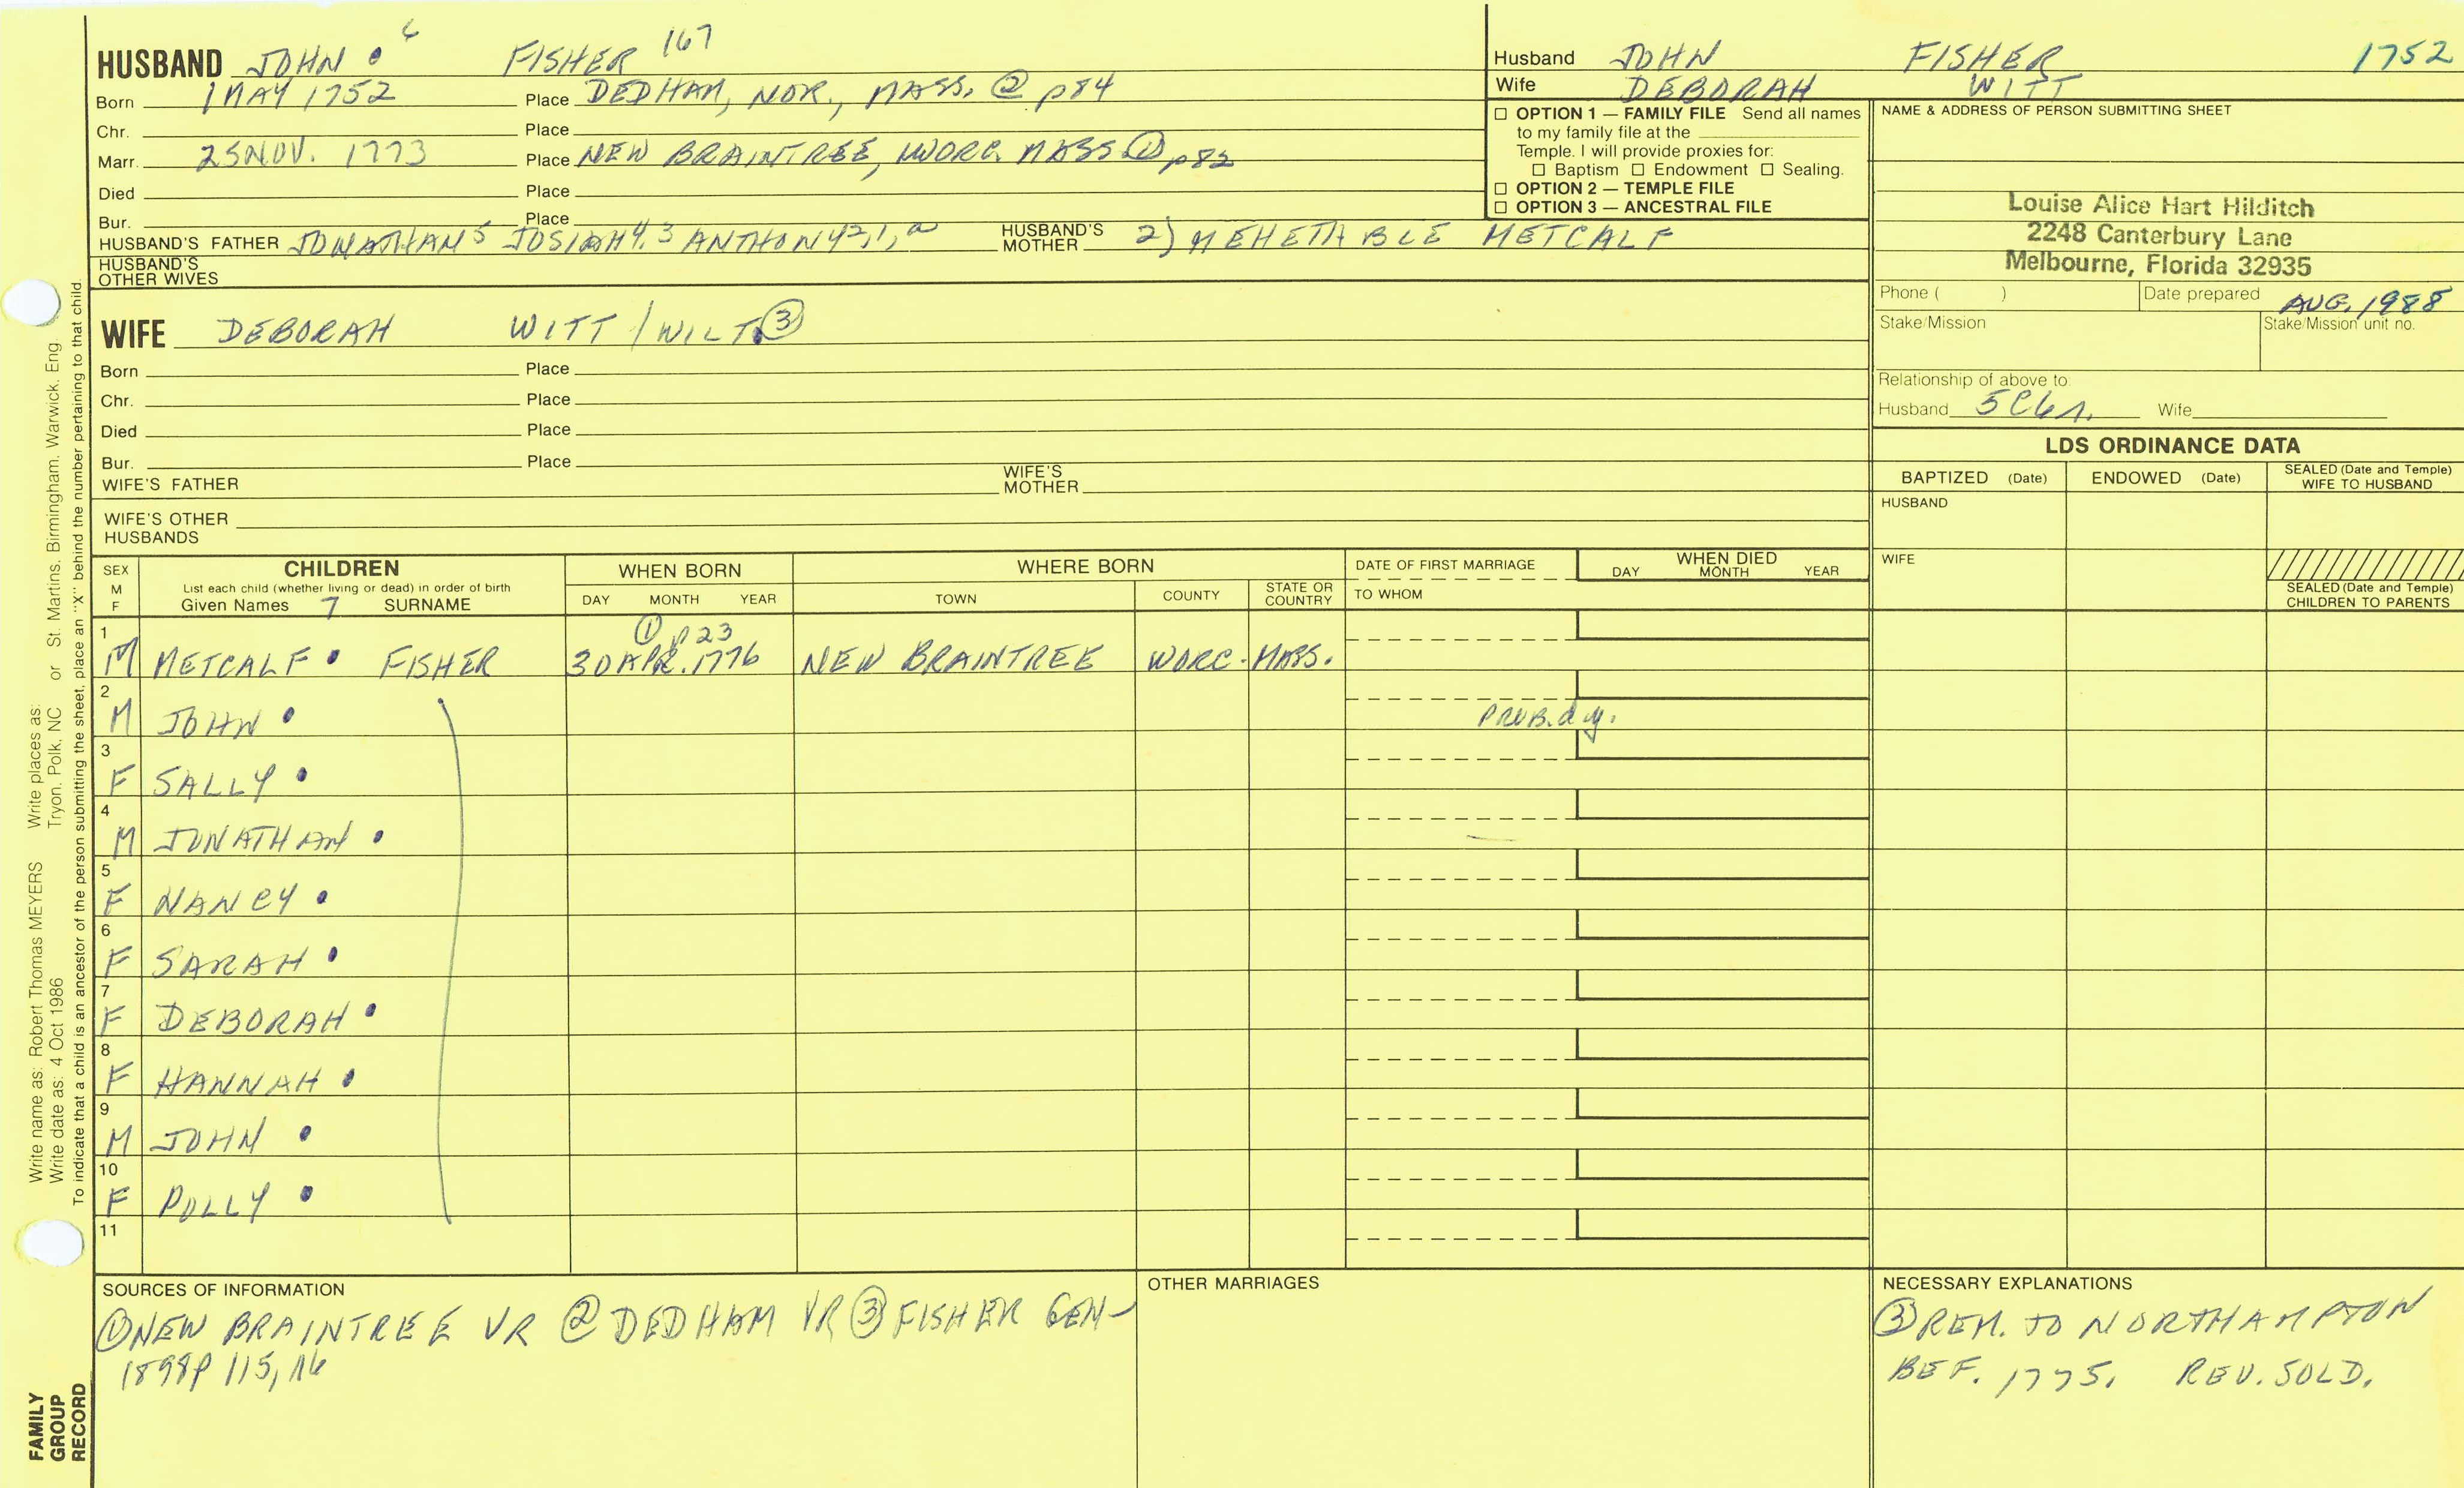 HUSBAND JOHN 6 FISHER 167
Born 1 MAY 1752 Place DEDHAM, NOR., MASS. ② p84
Chr. Place
Marr. 25 NOV. 1773 Place NEW BRAINTREE, WORC. MASS ① p82
Died Place
Bur. Place
HUSBAND'S FATHER JONATHAN5 JOSIAH4,3 ANTHONY2,1,a HUSBAND'S MOTHER 2) MEHETABLE METCALF
HUSBAND'S OTHER WIVES
Husband JOHN FISHER 1752
Wife DEBORAH WITT
☐ OPTION 1 — FAMILY FILE Send all names
to my family file at the
Temple. I will provide proxies for:
☐ Baptism ☐ Endowment ☐ Sealing.
☐ OPTION 2 — TEMPLE FILE
☐ OPTION 3 — ANCESTRAL FILE
NAME & ADDRESS OF PERSON SUBMITTING SHEET
Louise Alice Hart Hilditch
2248 Canterbury Lane
Melbourne, Florida 32935
Phone ( ) Date prepared AUG, 1988
Stake/Mission Stake/Mission unit no.
Relationship of above to:
Husband 5C6r. Wife
WIFE DEBORAH WITT / WILT ③
Born Place
Chr. Place
Died Place
Bur. Place
WIFE'S FATHER WIFE'S MOTHER
WIFE'S OTHER
HUSBANDS
LDS ORDINANCE DATA
BAPTIZED (Date) ENDOWED (Date) SEALED (Date and Temple) WIFE TO HUSBAND
HUSBAND
WIFE
SEALED (Date and Temple)
CHILDREN TO PARENTS
SEX M F
CHILDREN
List each child (whether living or dead) in order of birth
Given Names 7 SURNAME
WHEN BORN
DAY MONTH YEAR
WHERE BORN
TOWN COUNTY STATE OR COUNTRY
DATE OF FIRST MARRIAGE
TO WHOM
WHEN DIED
DAY MONTH YEAR
① p23
1 M METCALF FISHER 30 APR. 1776 NEW BRAINTREE WORC. MASS.
2 M JOHN PROB. d.y.
3 F SALLY
4 M JONATHAN
5 F NANCY
6 F SARAH
7 F DEBORAH
8 F HANNAH
9 M JOHN
10 F POLLY
11
SOURCES OF INFORMATION
① NEW BRAINTREE VR ② DEDHAM VR ③ FISHER GEN-
1898 p 115, 116
OTHER MARRIAGES
NECESSARY EXPLANATIONS
③ REM. TO NORTHAMPTON
BEF. 1775. REV. SOLD.
Write name as: Robert Thomas MEYERS Write places as:
Write date as: 4 Oct 1986 Tryon, Polk, NC or St. Martins, Birmingham, Warwick, Eng.
To indicate that a child is an ancestor of the person submitting the sheet, place an "X" behind the number pertaining to that child.
FAMILY
GROUP
RECORD